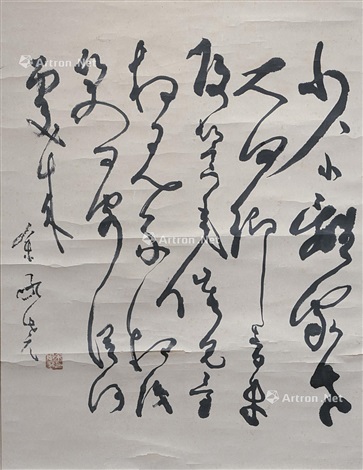 少小離家老
大回鄉音未
改鬢毛衰兒童
相見不相識
笑問客從何
處來
Artron.Net
Artron.Net
Artron.Net
Artron.Net